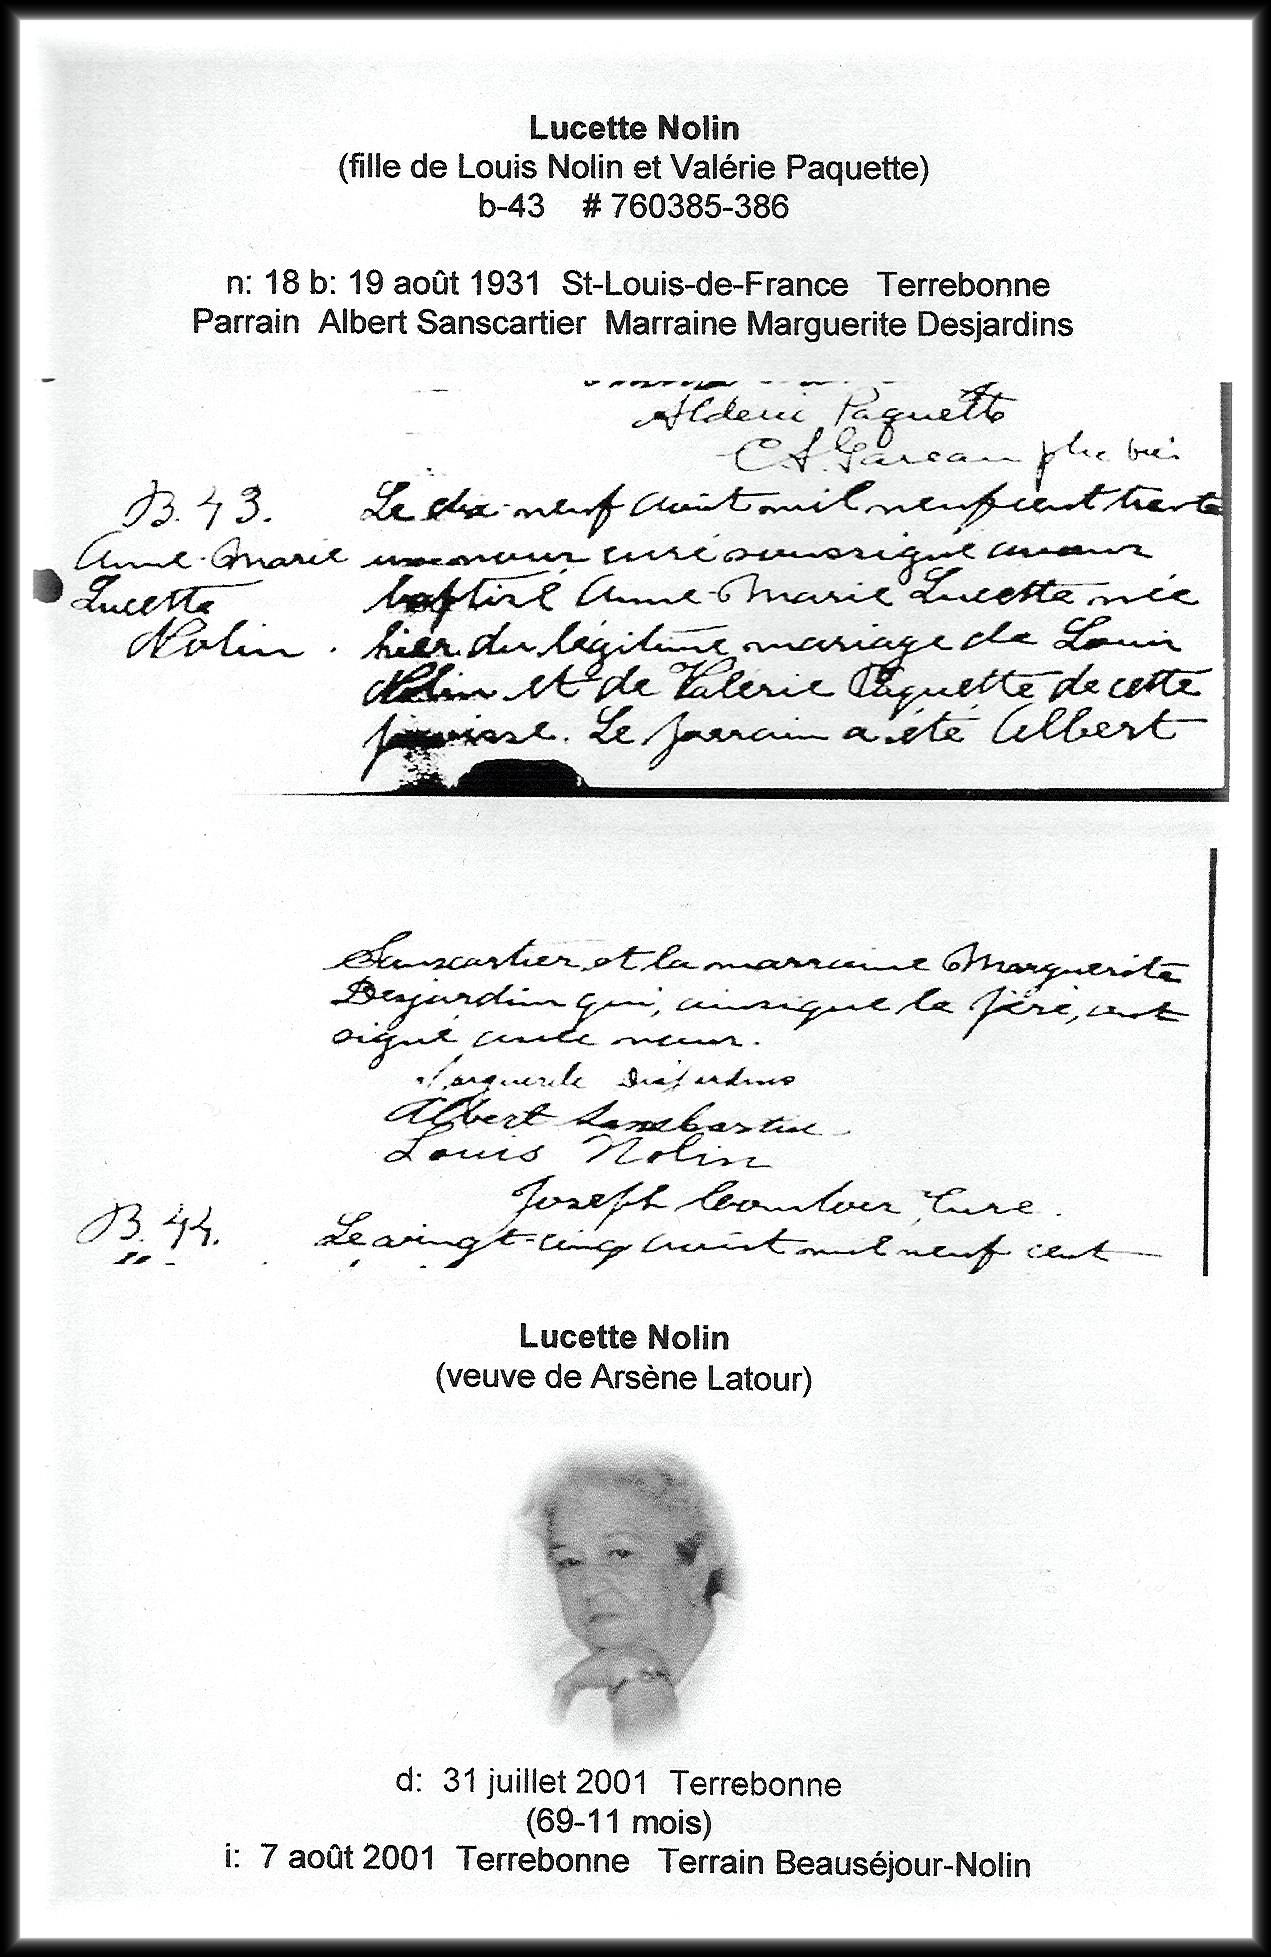 Lucette Nolin
(fille de Louis Nolin et Valérie Paquette)
b-43 # 760385-386
n: 18 b: 19 août 1931 St-Louis-de-France Terrebonne
Parrain Albert Sanscartier Marraine Marguerite Desjardins
Paquette
B. 43.
Anne-Marie
Lucette
Nolin.
Le dix-neuf août mil neuf cent trente
un nous curé soussigné avons
baptisé Anne-Marie Lucette née
hier du légitime mariage de Louis
Nolin et de Valérie Paquette de cette
paroisse. Le parrain a été Albert
Sanscartier et la marraine Marguerite
Desjardins qui, ainsi que le père, ont
signé avec nous.
Marguerite Desjardins
Albert Sanscartier
Louis Nolin
Joseph Curé.
B. 44.
Le vingt-cinq août mil neuf cent
Lucette Nolin
(veuve de Arsène Latour)
d: 31 juillet 2001 Terrebonne
(69-11 mois)
i: 7 août 2001 Terrebonne Terrain Beauséjour-Nolin